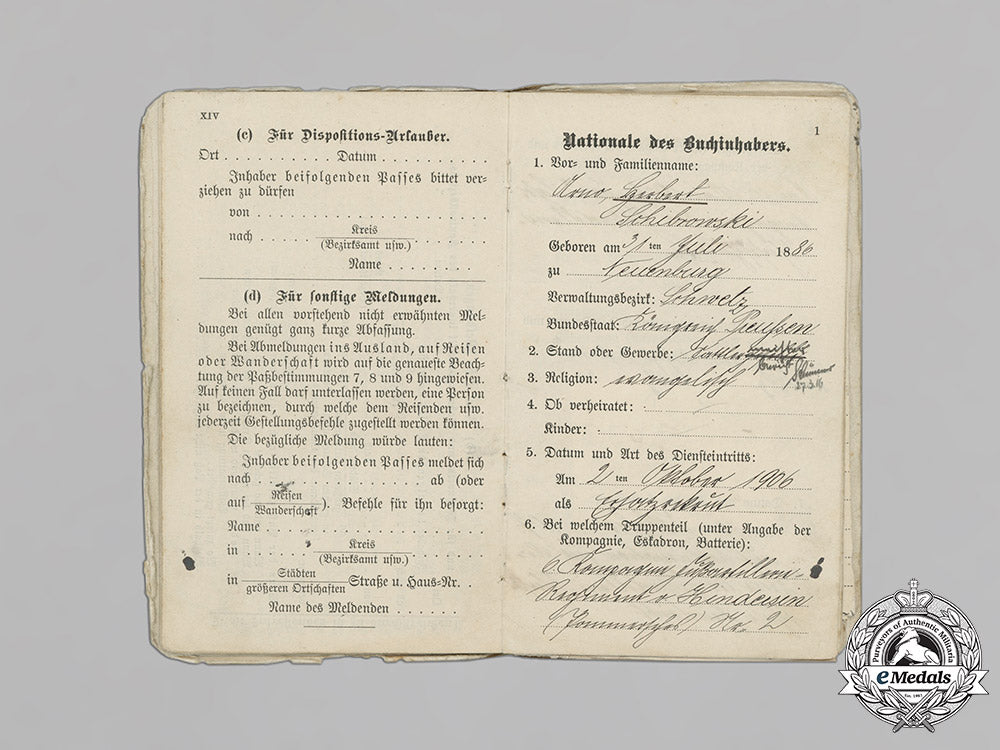 XIV
(c) Für Dispositions-Urlauber.
Ort . . . . . . . . . . Datum . . . . . . . . . . .
Inhaber beifolgenden Passes bittet ver-
ziehen zu dürfen
von . . . . . . . . . . . . . . . . . . . . . .
nach . . . . . Kreis . . . . . . . .
(Bezirksamt usw.)
Name . . . . . . . .
(d) Für sonstige Meldungen.
Bei allen vorstehend nicht erwähnten Mel-
dungen genügt ganz kurze Abfassung.
Bei Abmeldungen ins Ausland, auf Reisen
oder Wanderschaft wird auf die genaueste Beach-
tung der Paßbestimmungen 7, 8 und 9 hingewiesen.
Auf keinen Fall darf unterlassen werden, eine Person
zu bezeichnen, durch welche dem Reisenden usw.
jederzeit Gestellungsbefehle zugestellt werden können.
Die bezügliche Meldung würde lauten:
Inhaber beifolgenden Passes meldet sich
nach . . . . . . . . . . . . . . . . ab (oder
auf Reisen
Wanderschaft ). Befehle für ihn besorgt:
Name . . . . . . . . . . . . . . . . . . . . .
in . . . . . . . Kreis . . . . . . . .
(Bezirksamt usw.)
in Städten
größeren Ortschaften Straße u. Haus-Nr. .
Name des Meldenden . . . . . .
1
Nationale des Buchinhabers.
1. Vor- und Familienname:
Arno, Herbert
Schibrowski
Geboren am 31ten Juli 1886
zu Neuenburg
Verwaltungsbezirk: Schwetz
Bundesstaat: Königreich Preußen
2. Stand oder Gewerbe: Sattler
27.3.16
3. Religion: evangelisch
4. Ob verheiratet:
Kinder:
5. Datum und Art des Diensteintritts:
Am 2ten Oktober 1906
als Ersatzrekrut
6. Bei welchem Truppenteil (unter Angabe der
Kompagnie, Eskadron, Batterie):
6. Kompagnie Fußartillerie-
Regiment v. Hindersin
(Pommersches) Nr. 2
Purveyors of Authentic Militaria
eMedals